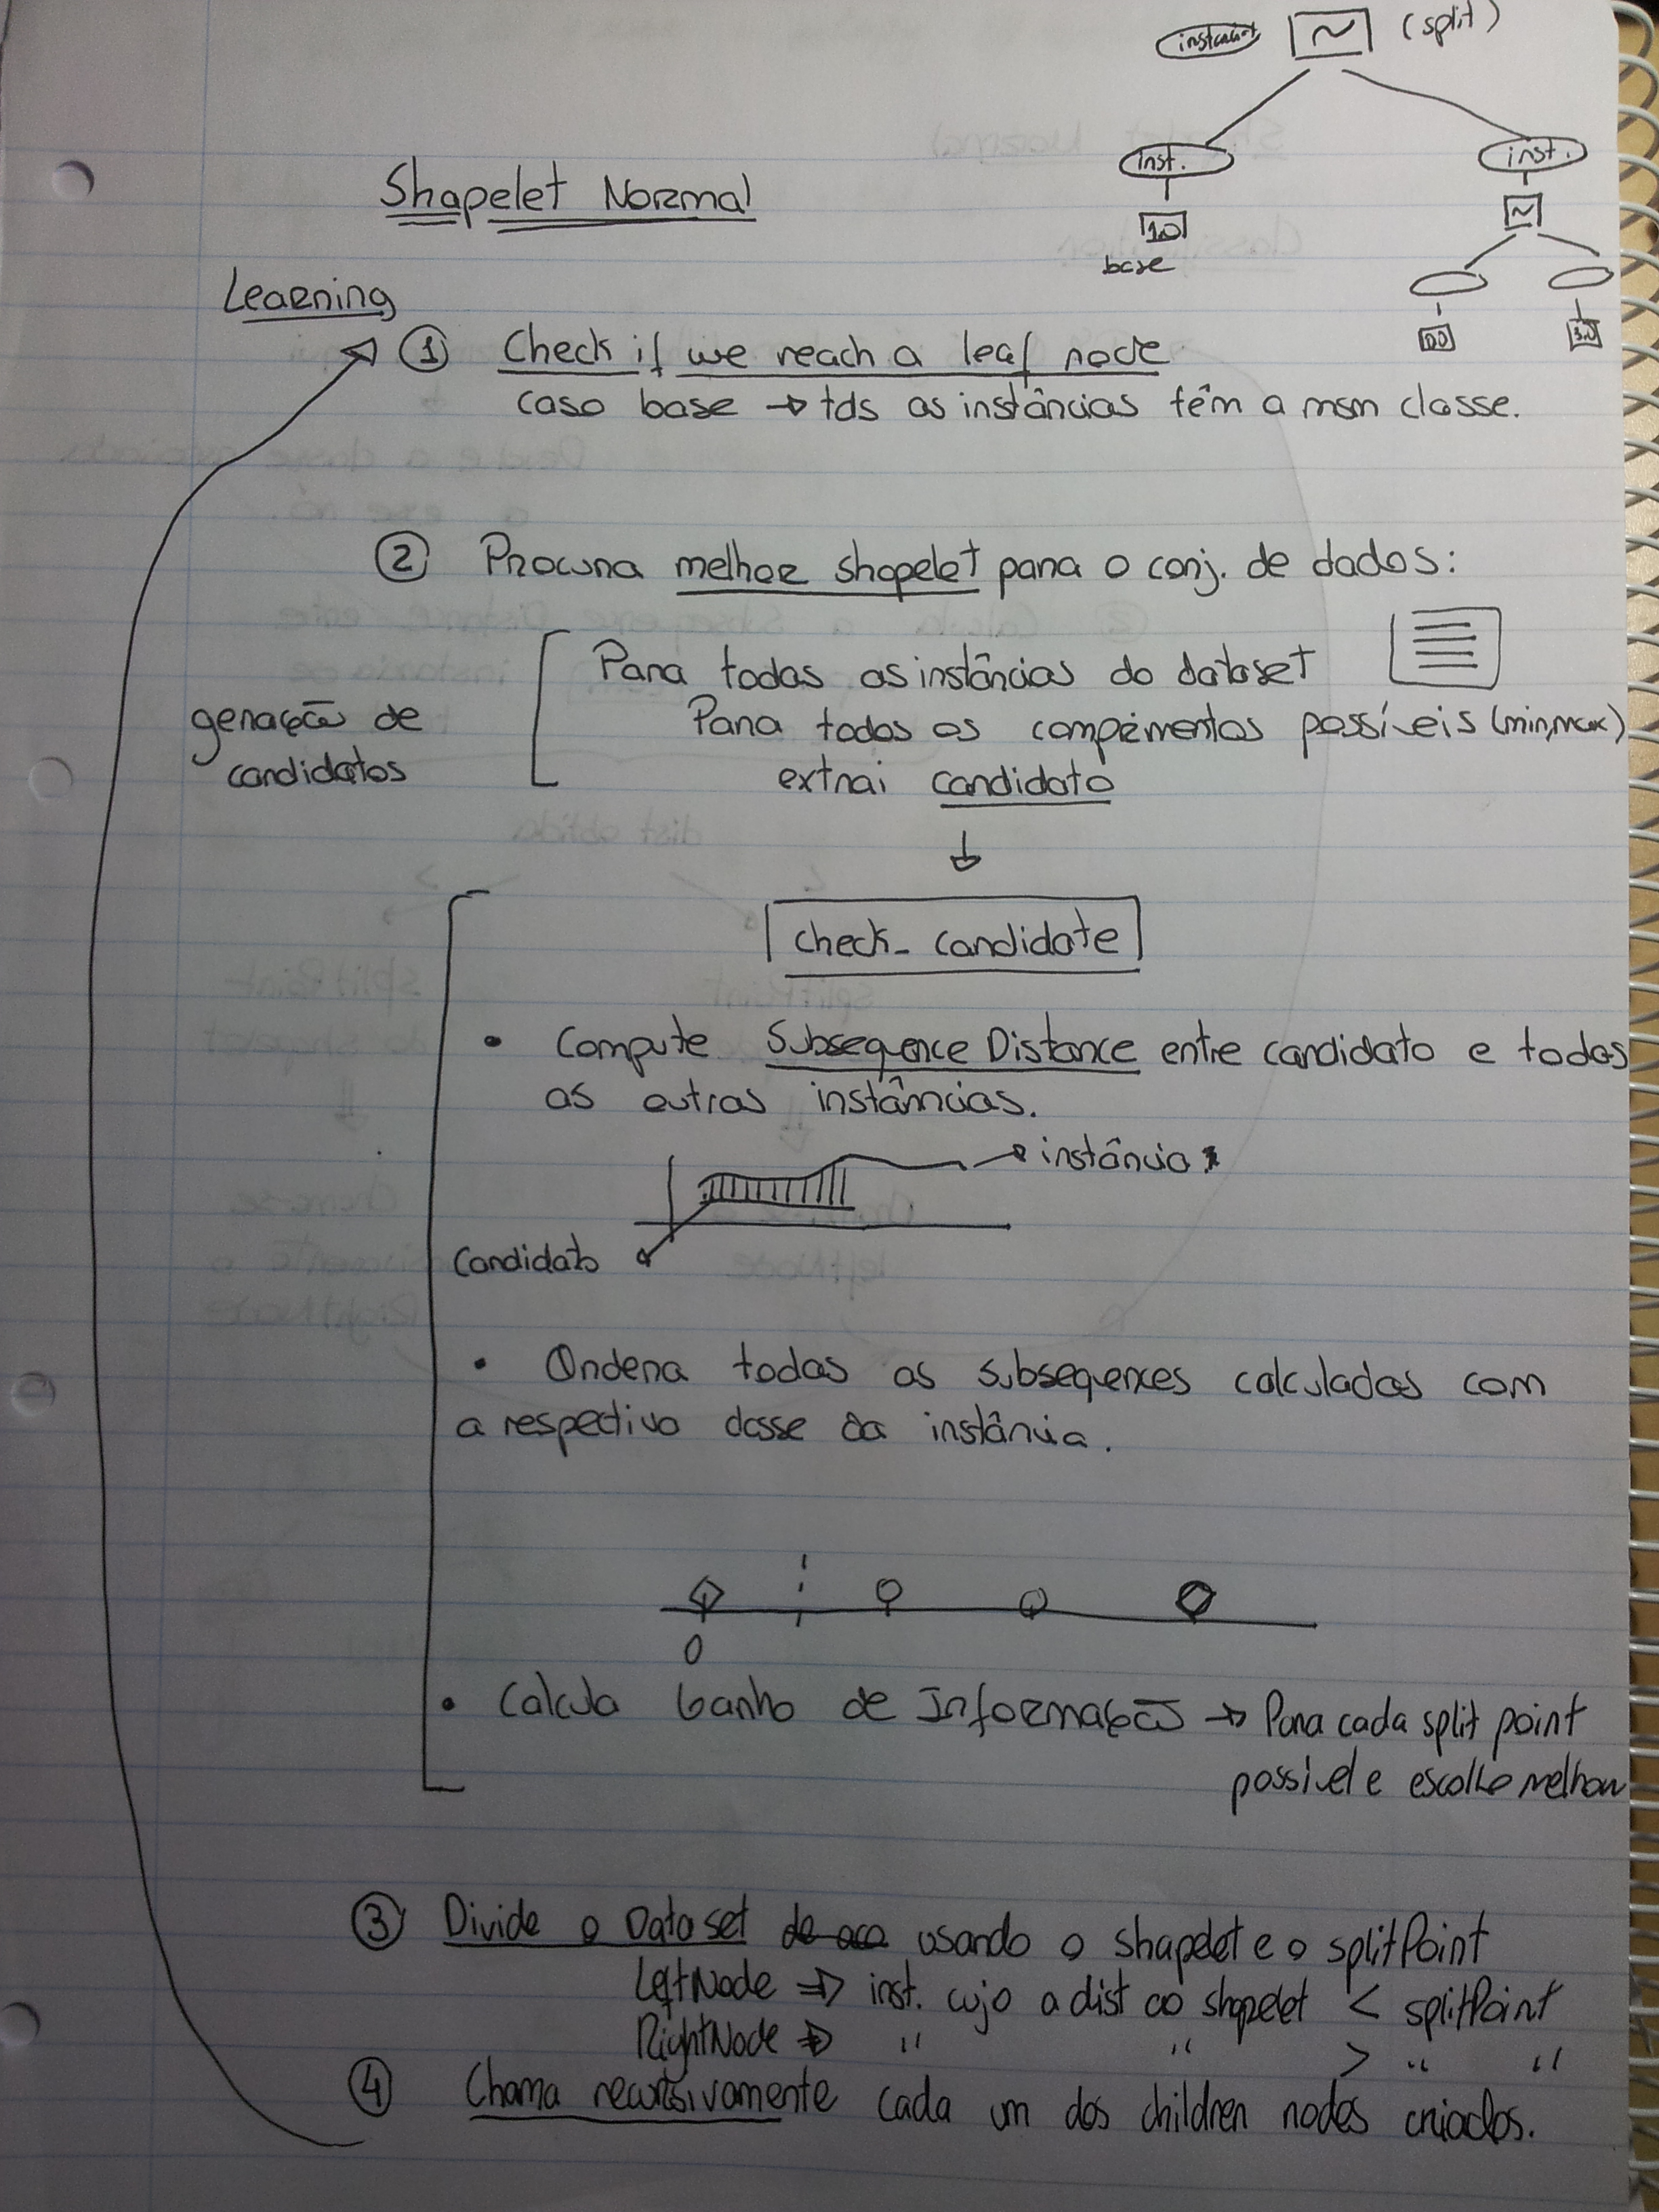 instâncias (split)
inst. inst.
1.0
base
0.0 3.0
Shapelet Normal
Learning
① Check if we reach a leaf node
caso base → tds as instâncias têm a msm classe.
② Procura melhor shapelet para o conj. de dados:
geração de
candidatos
Para todas as instâncias do dataset
Para todos os comprimentos possíveis (min,max)
extrai candidato
↓
check_candidate
• Compute Subsequence Distance entre candidato e todas
as outras instâncias.
instância
Candidato
• Ordena todas as subsequences calculadas com
a respectiva classe da instância.
0
• Calcula Ganho de Informação → Para cada split point
possível e escolhe melhor
③ Divide o Dataset usando o shapelet e o splitPoint
LeftNode ⇒ inst. cujo a dist ao shapelet < splitPoint
RightNode ⇒ " " > " "
④ Chama recursivamente cada um dos children nodes criados.